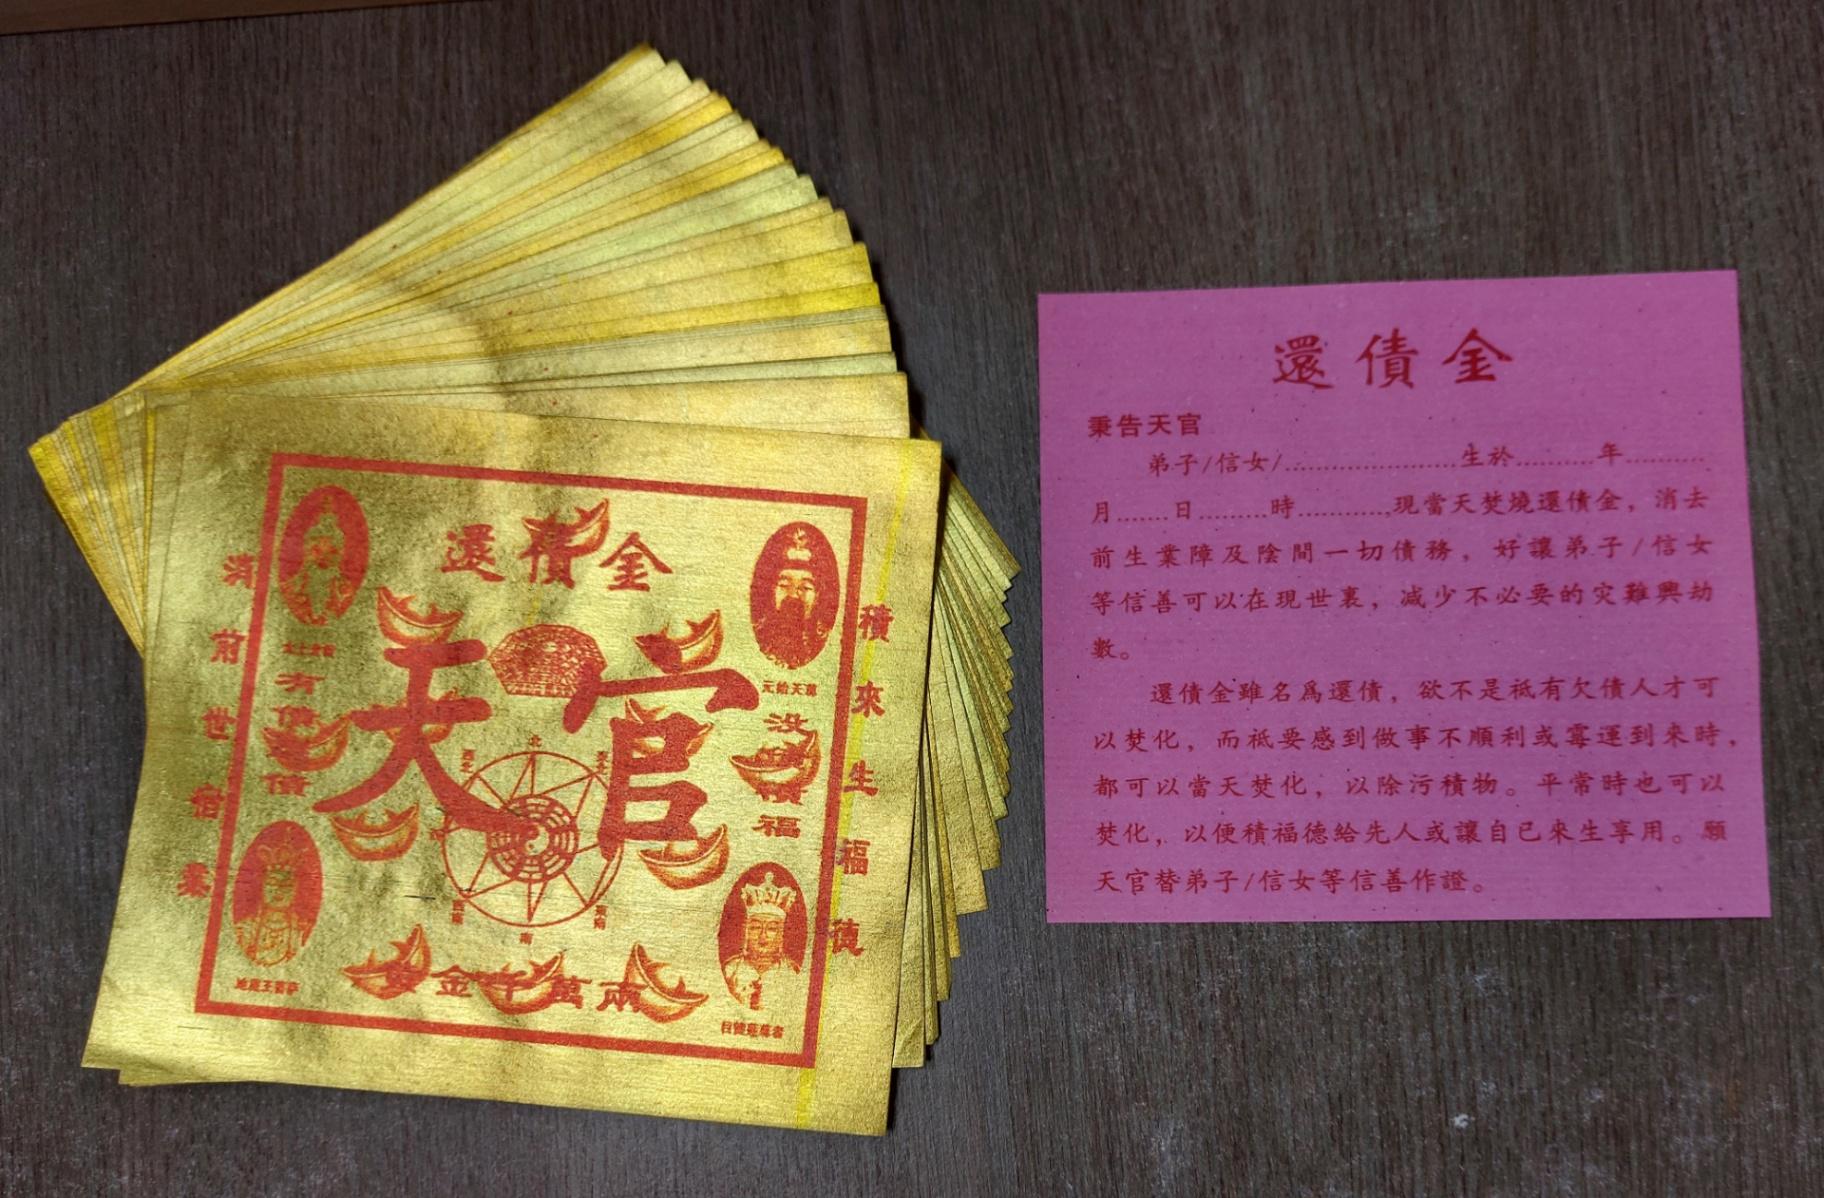 還債金
天官
消前世宿業
積來生福德
有債還債
太上老君
元始天尊
北
南
地藏王菩薩
目犍蓮尊者
黃金千萬兩
還債金
秉告天官
弟子/信女/......................生於..........年..........
月.......日.........時............,現當天焚燒還債金，消去
前生業障及陰間一切債務，好讓弟子/信女
等信善可以在現世裏，减少不必要的灾難興劫
數。
還債金雖名爲還債，欲不是祇有欠債人才可
以焚化，而祇要感到做事不順利或霉運到來時，
都可以當天焚化，以除污積物。平常時也可以
焚化，以便積福德給先人或讓自已來生享用。願
天官替弟子/信女等信善作證。